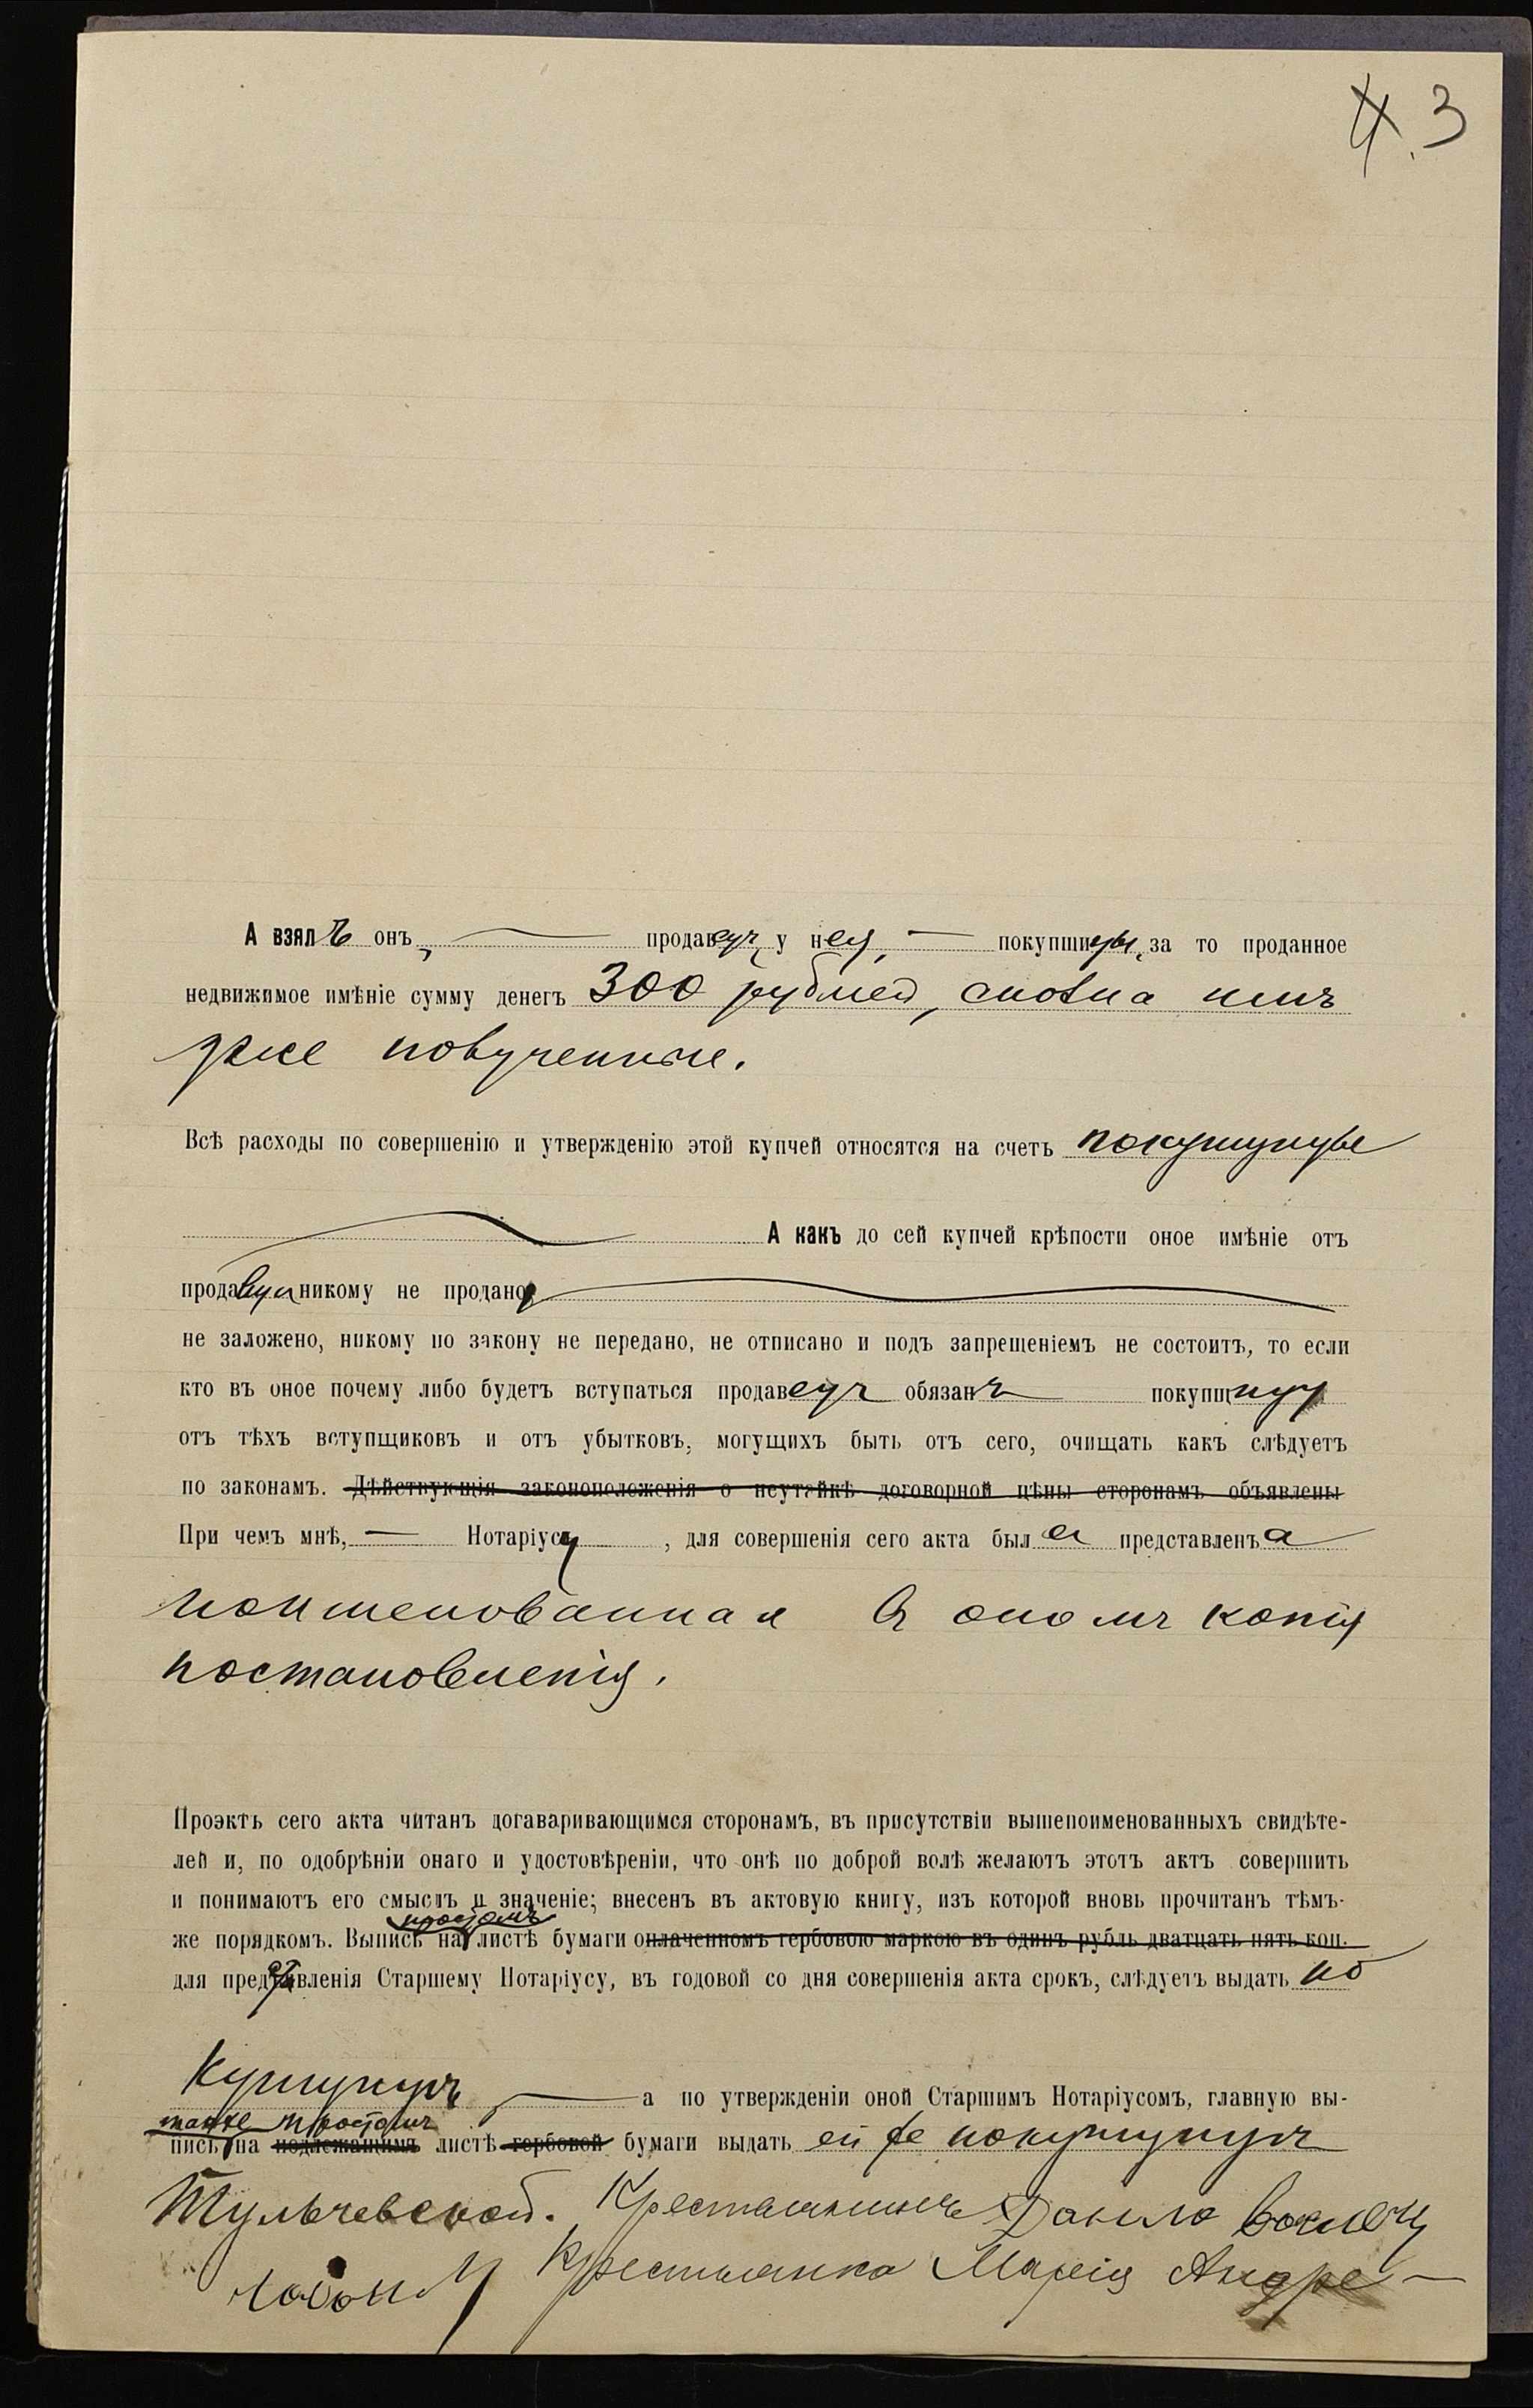 4. 3
А взялъ онъ, продавецъ, у нея, покупщицы, за то проданное
недвижимое имѣніе сумму денегъ 300 рублей, сполна имъ
уже полученные.
Всѣ расходы по совершенію и утвержденію этой купчей относятся на счетъ покупщицы
А какъ до сей купчей крѣпости оное имѣніе отъ
продавца никому не продано,
не заложено, никому по закону не передано, не отписано и подъ запрещеніемъ не состоитъ, то если
кто въ оное почему либо будетъ вступаться продавецъ обязанъ покупщицу
отъ тѣхъ вступщиковъ и отъ убытковъ, могущихъ быть отъ сего, очищать какъ слѣдуетъ
по законамъ. Дѣйствующія законоположенія о неутайкѣ договорной цѣны сторонамъ объявлены
При чемъ мнѣ, Нотаріусу, для совершенія сего акта была представлена
поименованная въ ономъ копія
постановленія.
Проэктъ сего акта читанъ догаваривающимся сторонамъ, въ присутствіи вышепоименованныхъ свидѣте-
лей и, по одобрѣніи онаго и удостовѣреніи, что онѣ по доброй волѣ желаютъ этотъ актъ совершить
и понимаютъ его смыслъ и значеніе; внесенъ въ актовую книгу, изъ которой вновь прочитанъ тѣмъ-
простомъ
же порядкомъ. Выпись на листѣ бумаги оплаченномъ гербовою маркою въ одинъ рубль дватцать пять коп.
для представленія Старшему Нотаріусу, въ годовой со дня совершенія акта срокъ, слѣдуетъ выдать по
купщицѣ а по утвержденіи оной Старшимъ Нотаріусомъ, главную вы-
также простомъ
пись на подлежащимъ листѣ гербовой бумаги выдать ей же покупщицѣ
Тульчевской. Крестьянинъ Данило
Крестьянка Марія Андре-